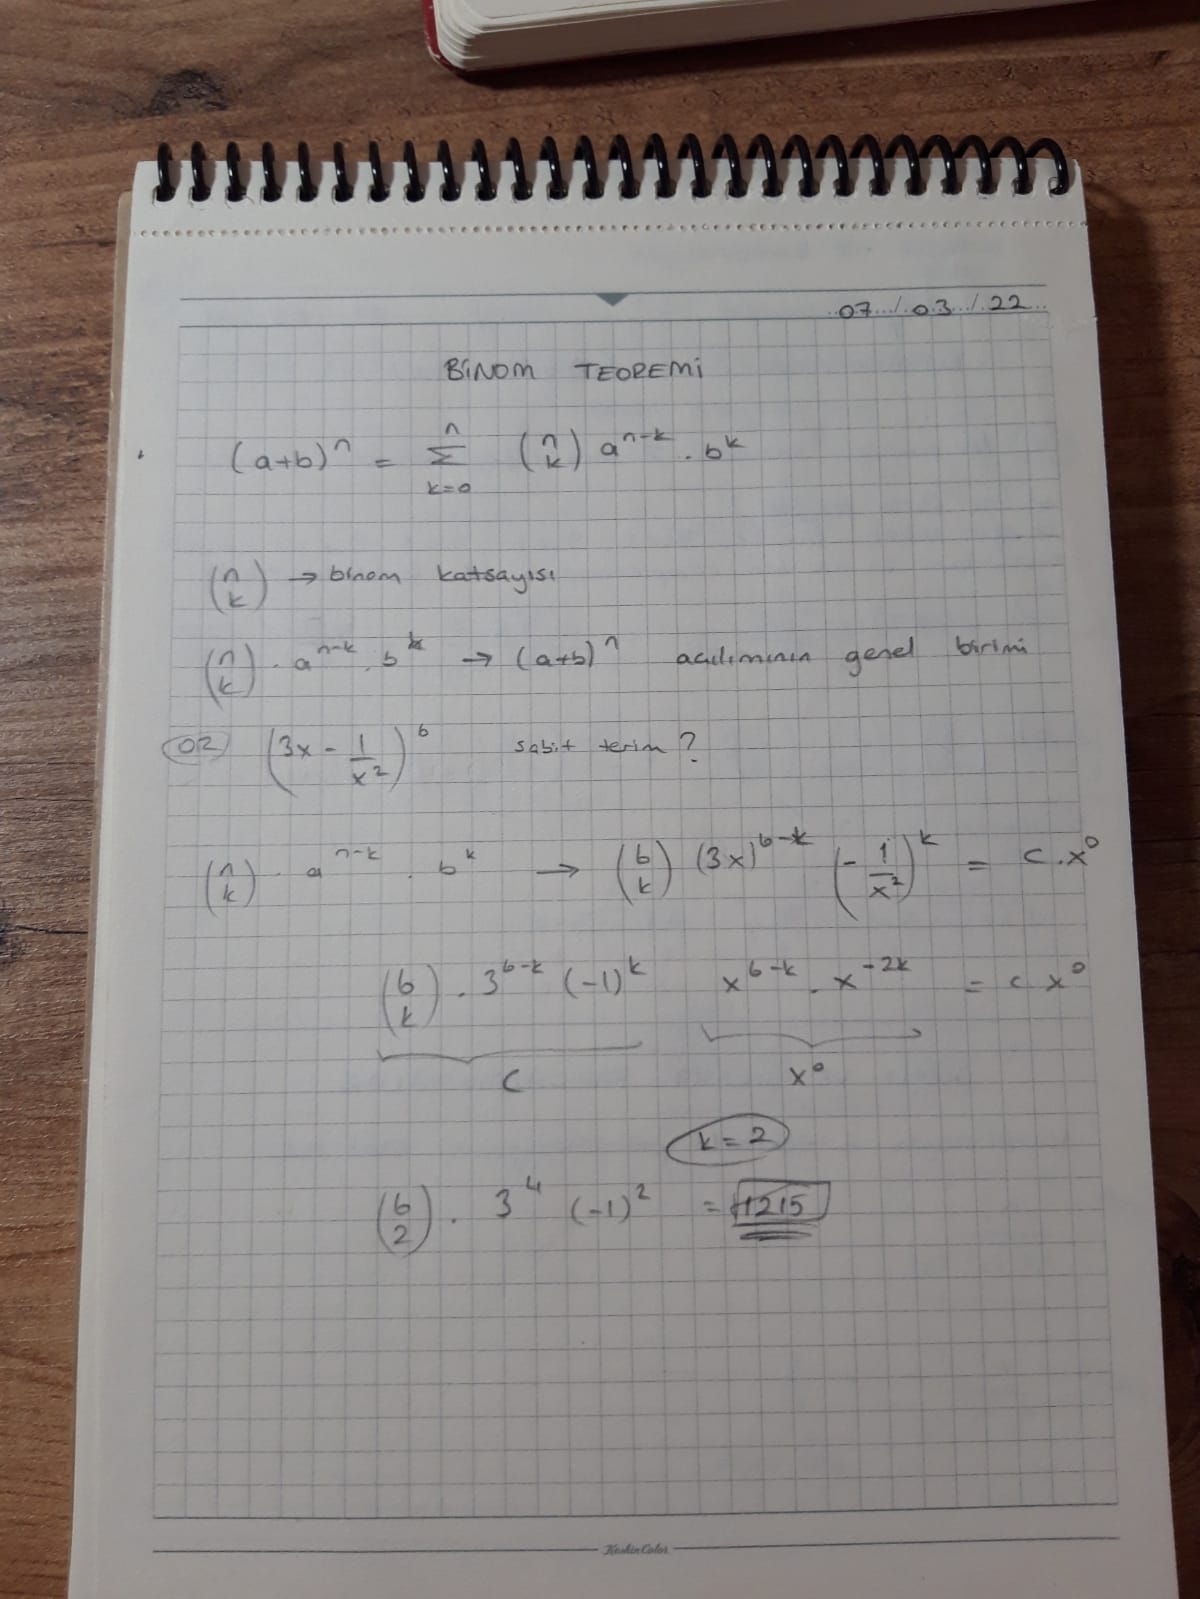 07/03/22
BİNOM TEOREMİ
(a+b)^n = Σ_{k=0}^{n} (n k) a^{n-k} . b^k
(n k) → binom katsayısı
(n k) . a^{n-k} . b^k → (a+b)^n açılımının genel birimi
ÖR (3x - 1/x^2)^6 sabit terim?
(n k) . a^{n-k} . b^k → (6 k) (3x)^{6-k} (-1/x^2)^k = c . x^0
(6 k) . 3^{6-k} (-1)^k x^{6-k} . x^{-2k} = c x^0
C x^0
k = 2
(6 2) . 3^4 (-1)^2 = 1215
KeskinColor